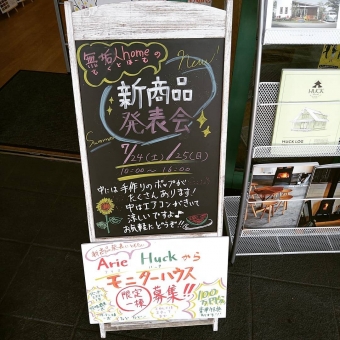 無垢人homeの
New!
新商品
発表会
Summer
7/24(土)/25(日)
10:00～16:00
中には手作りのポップが
たくさんあります!
中はエアコンがきいて
涼しいですよ♪
お気軽にどうぞ!!
Arie Huckから
モニターハウス
限定
一棟
募集!!
HUCK